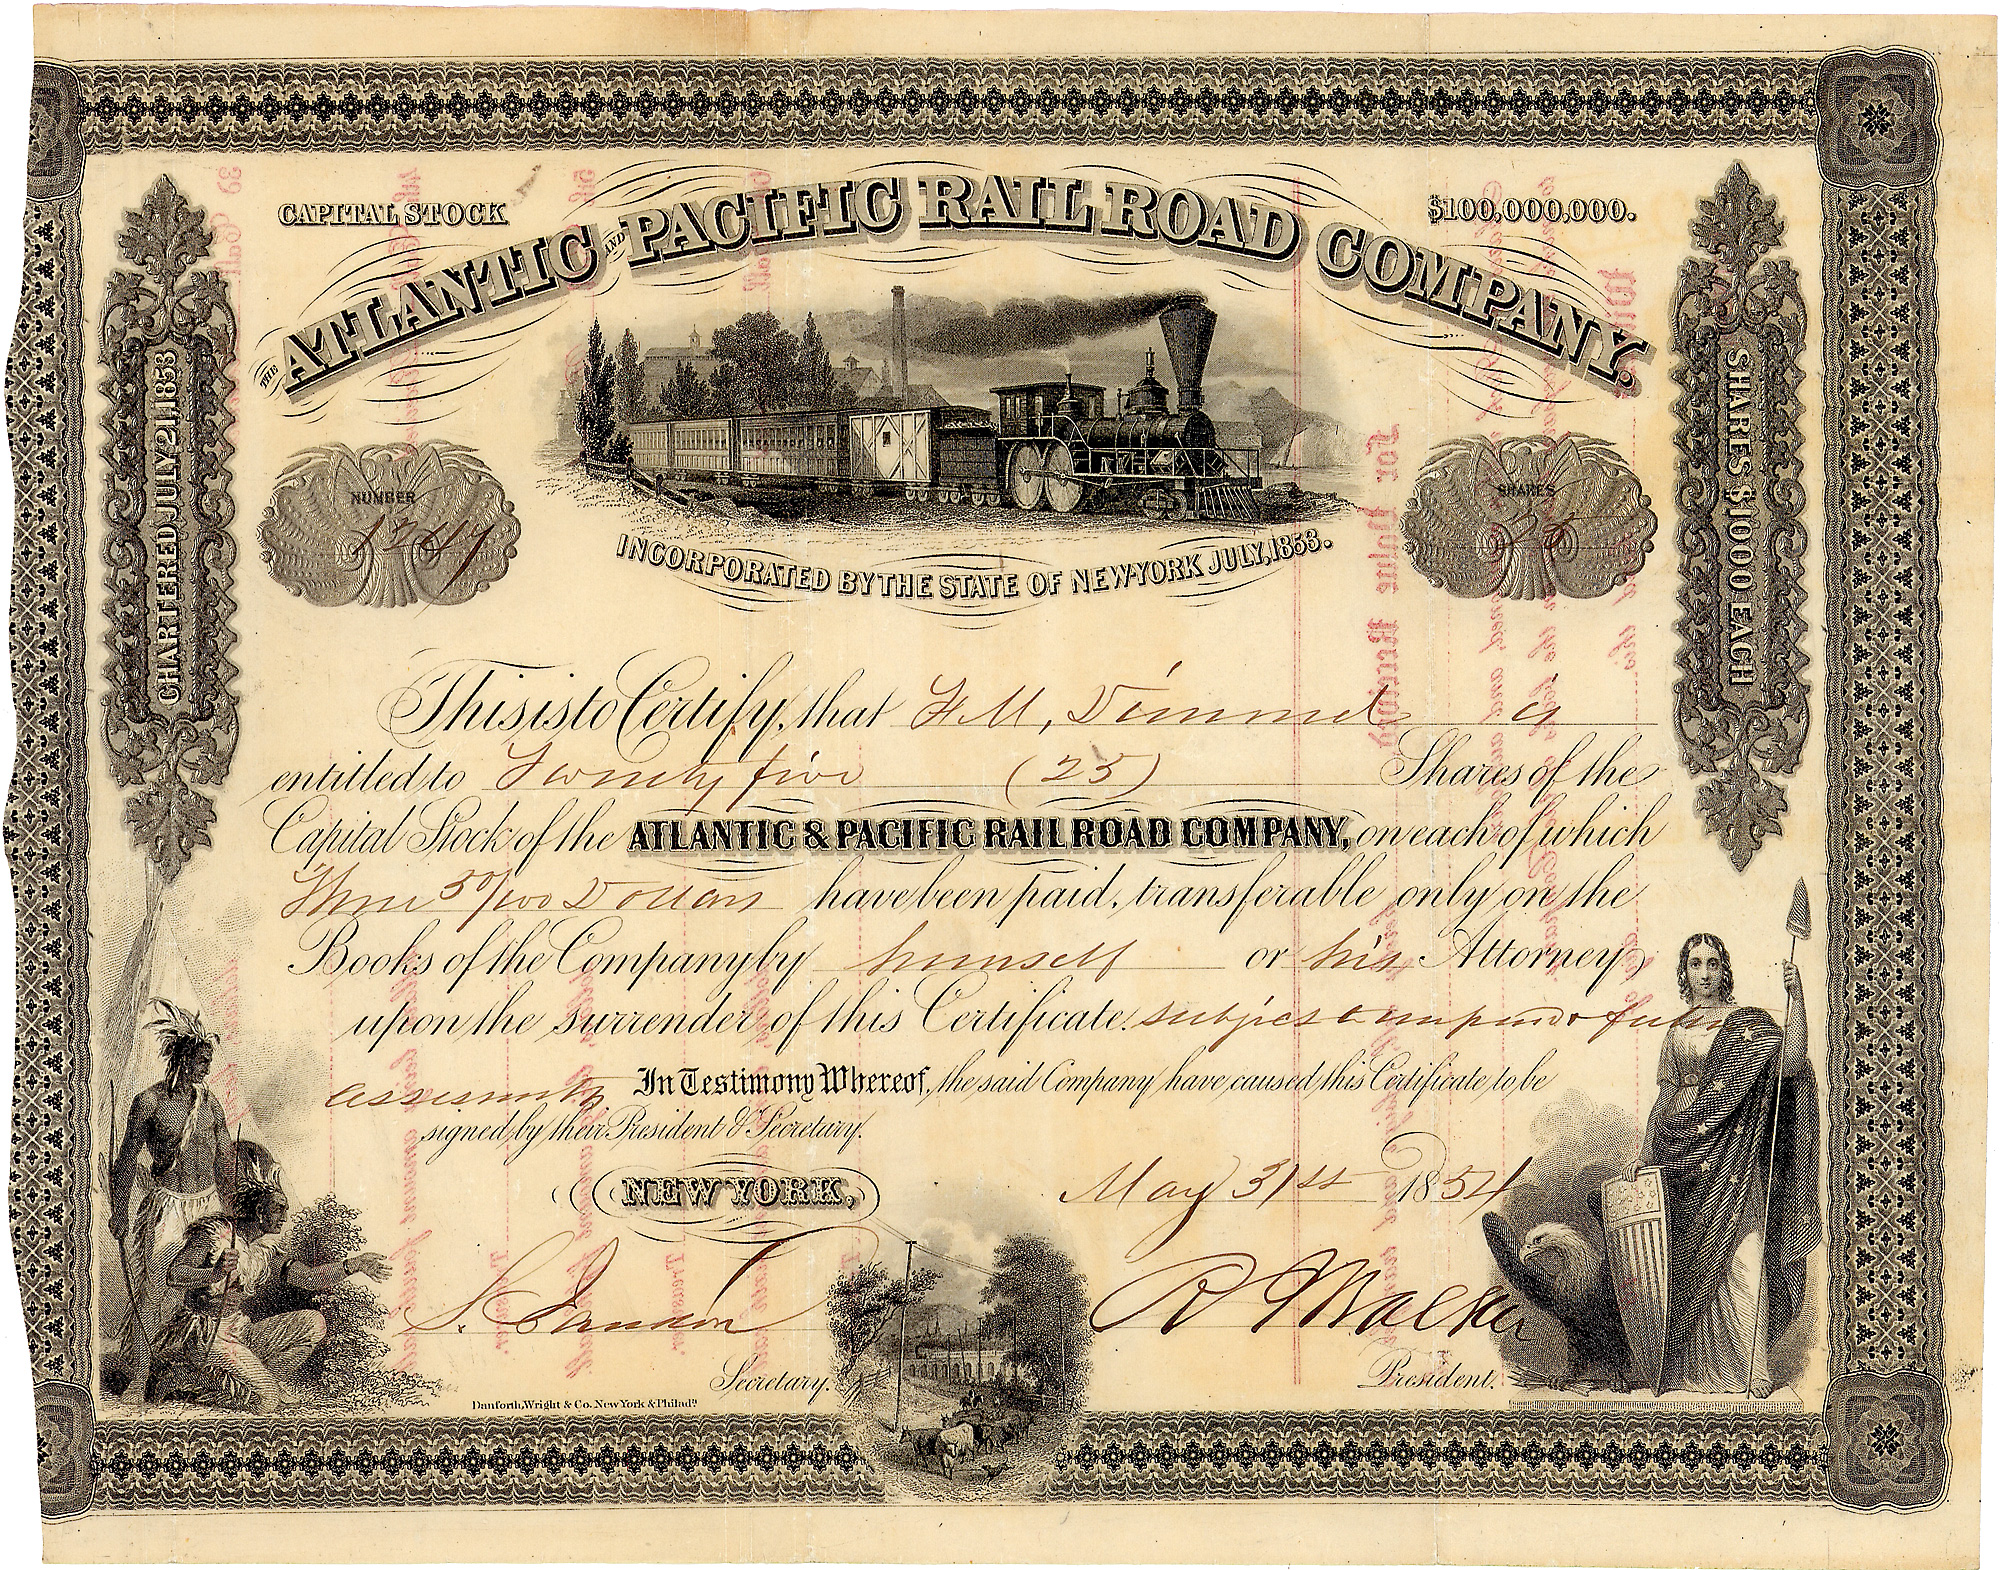 CAPITAL STOCK
$100,000,000.
THE ATLANTIC AND PACIFIC RAIL ROAD COMPANY.
CHARTERED JULY 21, 1853
SHARES $1000 EACH
NUMBER
SHARES
25
INCORPORATED BY THE STATE OF NEW-YORK JULY, 1853.
This is to Certify, that is
entitled to Twenty five (25) Shares of the
Capital Stock of the ATLANTIC & PACIFIC RAIL ROAD COMPANY, on each of which
Three 50/100 Dollars have been paid, transferable only on the
Books of the Company by himself or his Attorney
upon the surrender of this Certificate. subject to unpaid & future
assessments In Testimony Whereof, the said Company have caused this Certificate to be
signed by their President & Secretary.
NEW YORK, May 31st 1854
R J Walker
Secretary. President.
Danforth, Wright & Co. New York & Philada